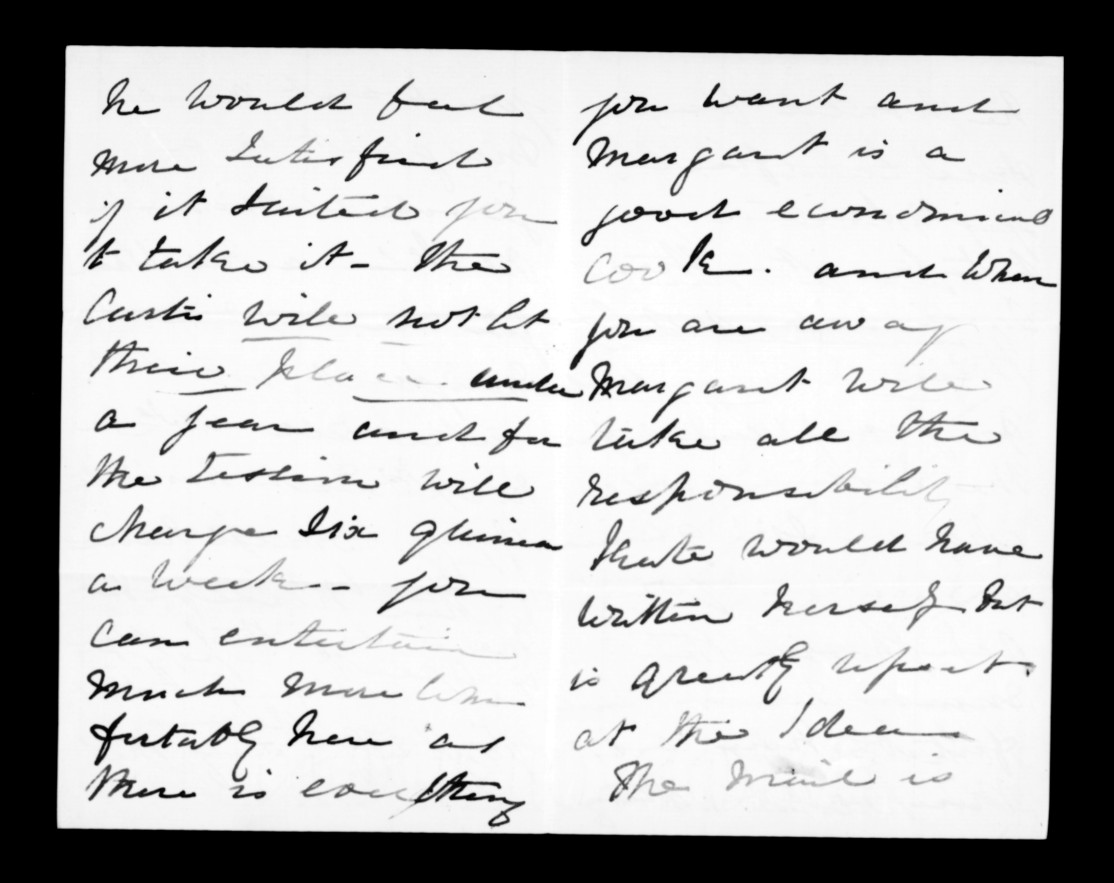 he would feel
more Satisfied
if it Suited you
to take it - the
Curtis will not let
their place under
a year and for
the Session will
charge Six guineas
a week - you
can entertain
much more com
fortably here as
there is everything
you want and
Margaret is a
good economical
cook. and when
you are away
Margaret will
take all the
responsibility
Kate would have
written herself but
is greatly upset
at the Idea
The Mail is